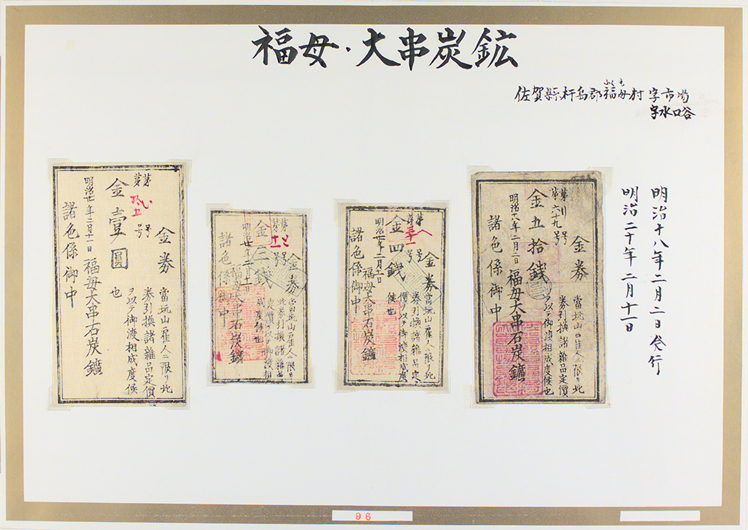 福母・大串炭鉱
佐賀縣杵島郡福母村字市場
ふくも
字水口谷
明治十八年二月二日発行
明治二十年二月十一日
金券
當坑山雇人ニ限リ此
券引換諸雑品定價
ヲ以テ御渡相成度候
也
第
第
号
号
金壹圓
明治廿年二月十一日
福母大串石炭鑛
諸色係御中
金券
當坑山雇人ニ限リ
此券引換諸雑品
金三錢
福母大串石炭鑛
諸色係御中
金券
當坑山雇人ニ限リ此
券引換諸雑品定
價ヲ以テ御渡相成度
候也
金四錢
福母大串石炭鑛
諸色係御中
金券
當坑山雇人ニ限リ此
券引換諸雑品定價
ヲ以テ御渡相成度候也
金五拾錢
明治十八年二月二日
福母大串石炭鑛
諸色係御中
96